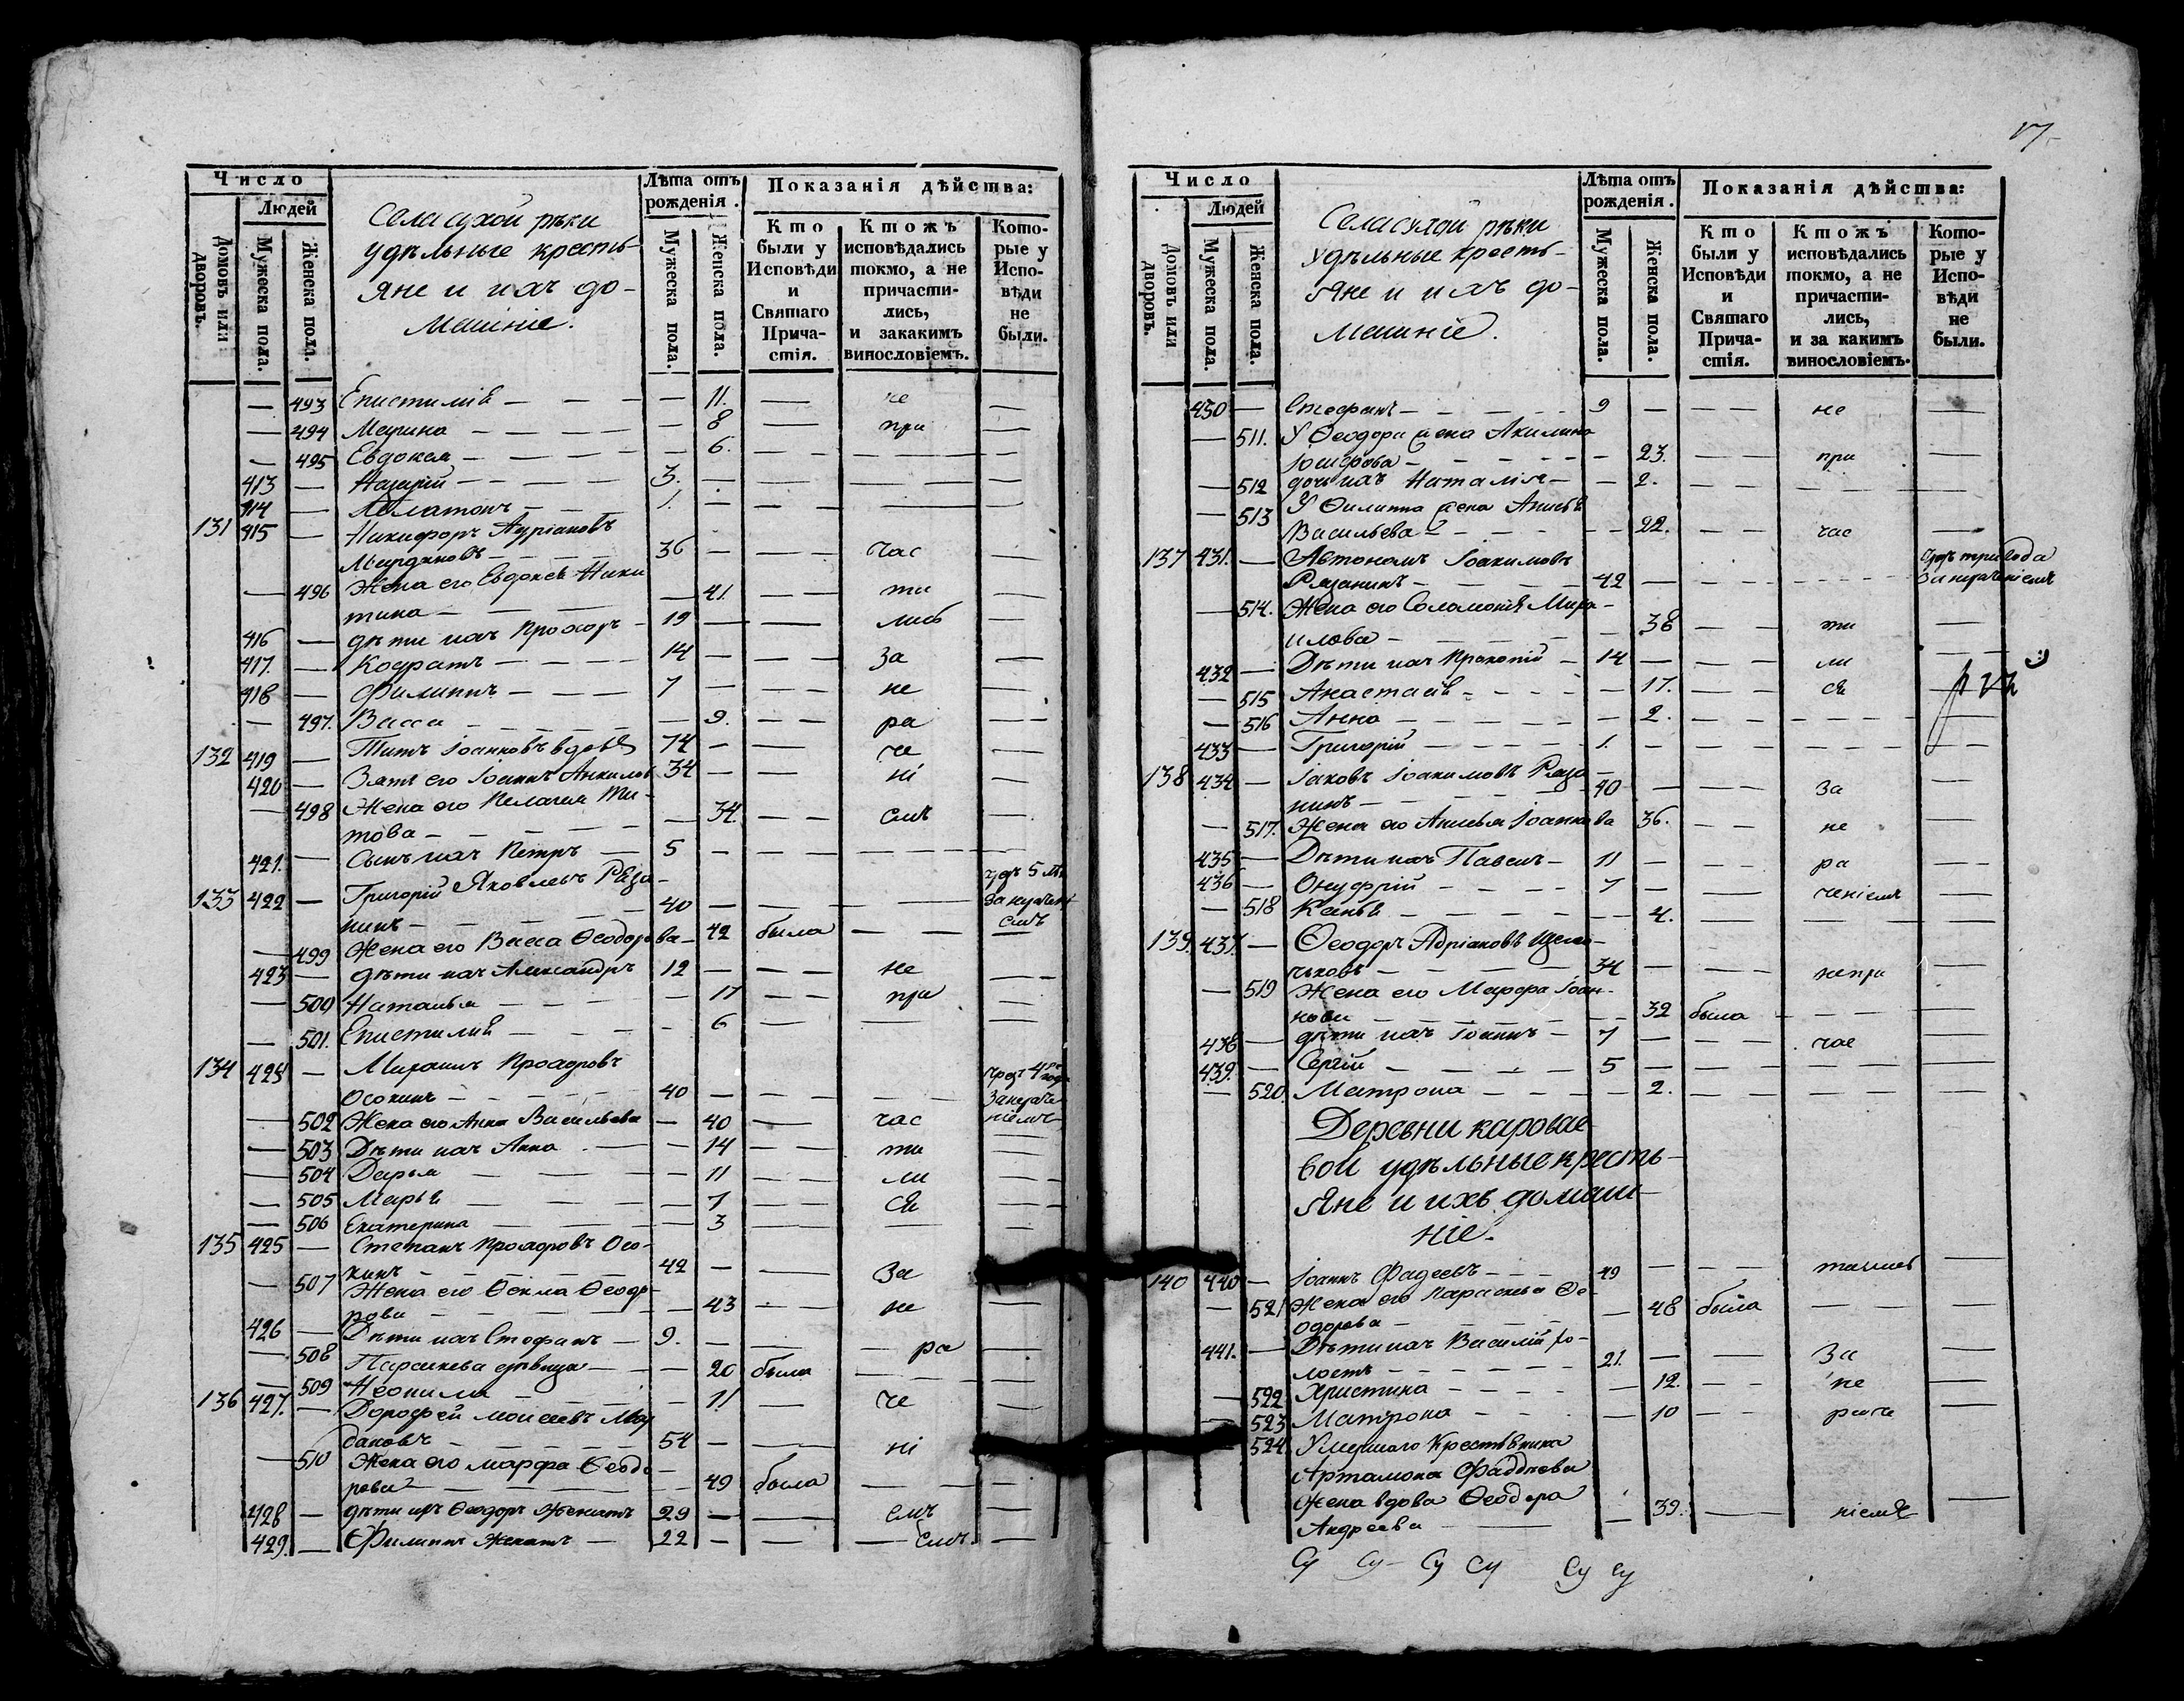 17
Число
Людей
Домовъ или дворовъ.
Мужеска пола.
Женска пола.
Села сухой рѣки
удѣльные кресть-
яне и ихъ до-
машніе.
Лѣта отъ рожденія.
Мужеска пола.
Женска пола.
Показанія дѣйства:
Кто были у Исповѣди и Святаго Прича-стія.
Ктожъ исповѣдались токмо, а не причасти-лись, и закакимъ винословіемъ.
Кото-рые у Испо-вѣди не были.
— 493 Епистимія — — 11. — не —
— 494 Марина — — 8 — при —
— 495 Евдокея — — 6. — — —
413 — Назарій — 3. — — — —
414 — Платонъ — 1. — — — —
131 415 — Никифоръ Андріановъ
Мардановъ — 36 — — час —
— 496 Жена его Евдокея Ники
тина — — 41. — ти —
416 — дѣти ихъ Прохоръ — 19 — — лись —
417. — Кодратъ — 14 — — за —
418 — Филиппъ — 7 — — не —
— 497. Васса — — 9. — ра —
132 419 — Титъ Іоанновъ вдовъ 74 — — че —
420 — Зять его Іоаннъ Акимовъ 34 — — ні —
— 498 Жена его Пелагея Ти-
това — — 34. — емъ —
421. — Сынъ ихъ Петръ — 5 — — — —
133 422 — Григорій Яковлевъ Ряза-
нинъ — 40 — — — чрезъ 5 лѣ за нераченіемъ
— 499 Жена его Васса Ѳеодорова — 42 была — —
423 — дѣти ихъ Александръ 12 — — не —
— 500 Наталья — — 17 — при —
— 501. Епистимия — — 6 — — —
134 424 — Михаилъ Прохоровъ
Осокинъ — 40 — — — чрезъ 4 года за нераченіемъ
— 502 Жена его Анна Васильева — 40 — час —
— 503 Дѣти ихъ Анна — — 14 — ти —
— 504 Дарья — — 11 — ли —
— 505 Марья — — 7 — ся —
— 506 Екатерина — — 3 — — —
135 425 — Степанъ Прохоровъ Осо-
кинъ — 42 — — за —
— 507 Жена его Ѳекла Ѳеодо-
рова — — 43 — не —
426 — Дѣти ихъ Стефанъ — 9. — — ра —
— 508 Параскева дѣвица — — 20 была — —
— 509 Неонила — — 11 — че —
136 427. — Дорофей Моисеевъ Мар
дановъ — 54 — — ні —
— 510 Жена его Марфа Ѳеодо-
рова — — 49 была — —
428 — дѣти ихъ Ѳеодоръ женатъ 29 — — емъ —
429. — Филиппъ женатъ — 22 — — емъ. —
Число
Людей
Домовъ или дворовъ.
Мужеска пола.
Женска пола.
Села сухой рѣки
удѣльные кресть-
яне и ихъ до-
машніе.
Лѣта отъ рожденія.
Мужеска пола.
Женска пола.
Показанія дѣйства:
Кто были у Исповѣди и Святаго Прича-стія.
Ктожъ исповѣдались токмо, а не причасти-лись, и за какимъ винословіемъ.
Кото-рые у Испо-вѣди не были.
430 — Стефанъ — 9 — — не —
— 511. У Ѳеодора жена Акилина
— — 23. — при —
— 512 дочь ихъ Наталія — — 2. — — —
— 513 У Филиппа жена Анисья
Васильева — — 22. — час —
137 431. — Автономъ Іоакимовъ
Рязанинъ — 42 — — — чрезъ три года за нераченіемъ
— 514. Жена его Соломонія Миха-
илова — — 38 — ти —
432 — Дѣти ихъ Прокопій — 14 — — ли —
— 515 Анастасія — — 17. — ся —
— 516 Анна — — 2. — — —
433 — Григорій — 1. — — — —
138 434 — Іаковъ Іоакимовъ Ряза-
нинъ — 40 — — за —
— 517. Жена его Анисья Іоаннова 36. — не —
435 — Дѣти ихъ Павелъ — 11 — — ра —
436 — Онуфрій — 7 — — ченіемъ —
— 518 Ксенія — — 4. — — —
139. 437. — Ѳеодоръ Адріановъ
— 34 — — непри —
— 519 Жена его Марфа Іоан-
нова — — 32 была — —
438 — дѣти ихъ Іоаннъ — 7 — — час —
439. — Сергій — 5 — — — —
— 520. Матрона — — 2. — — —
Деревни карова
вой удѣльные кресть-
яне и ихъ домаш-
ніе.
140 440 — Іоаннъ Фадеевъ — 49 — — тились —
— 521 Жена его Параскева Ѳе-
одорова — — 48 была — —
441. — Дѣти ихъ Василій хо-
лостъ — 21. — — за —
— 522 Христина — — 12. — не —
— 523 Матрона — — 10 — раче —
— 524 Умершаго крестьянина
Артамона Фаддѣева
жена вдова Ѳеодора
Андреева — — 39. — ніемъ —
Су Су Су Су Су Су